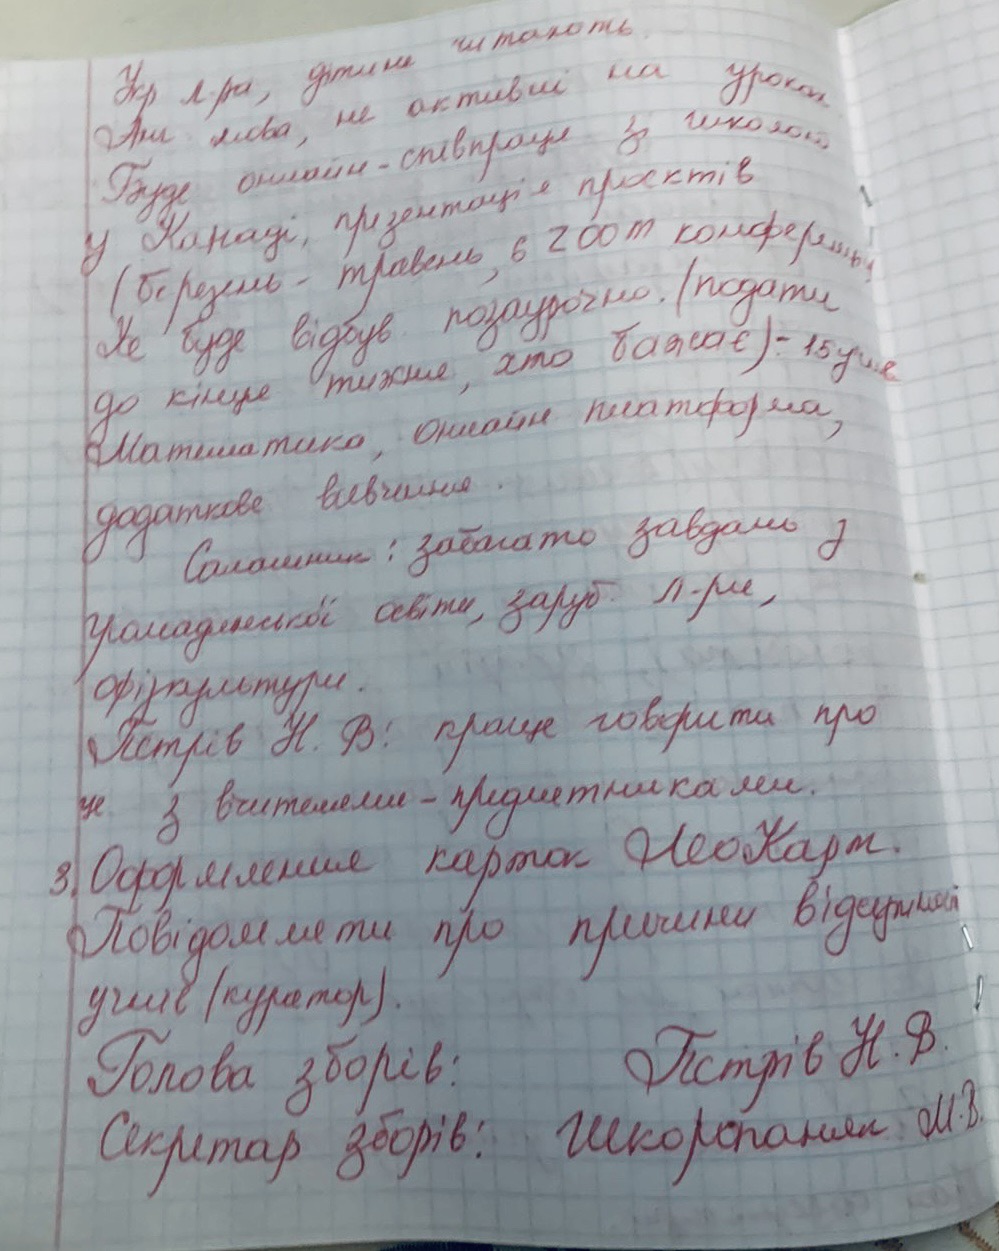 Укр л-ра, дітки не читають.
Анг мова, не активні на уроках
Буде онлайн-співпраця зі школою
у Канаді, презентація проєктів
(березень - травень, в zoom конференції
Це буде відбув. позаурочно. (подати
до кінця тижня, хто бажає) - 15 учнів
Математика, онлайн платформа,
додаткове вивчення.
Саламник: забагато завдань з
громадянської освіти, заруб. л-ри,
фізкультури.
Пістрів Н. В: краще говорити про
це з вчителями-предметниками.
3. Оформлення карток НеоКарт.
Повідомляти про причини відсутності
учнів (куратор).
Голова зборів: Пістрів Н. В.
Секретар зборів: Шкоропаняк М.В.